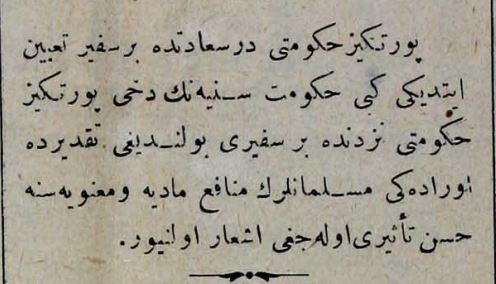 پورتكيز حكومتی درسعادتده بر سفیر تعیین
ایتدیكی كبی حكومت سنیه نك دخی پورتكیز
حكومتی نزدنده بر سفیری بولندیغی تقدیرده
اوراده كی مسلمانلرك منافع مادیه و معنویه سنه
حسن تأثیری اوله جغی اشعار اولنیور.